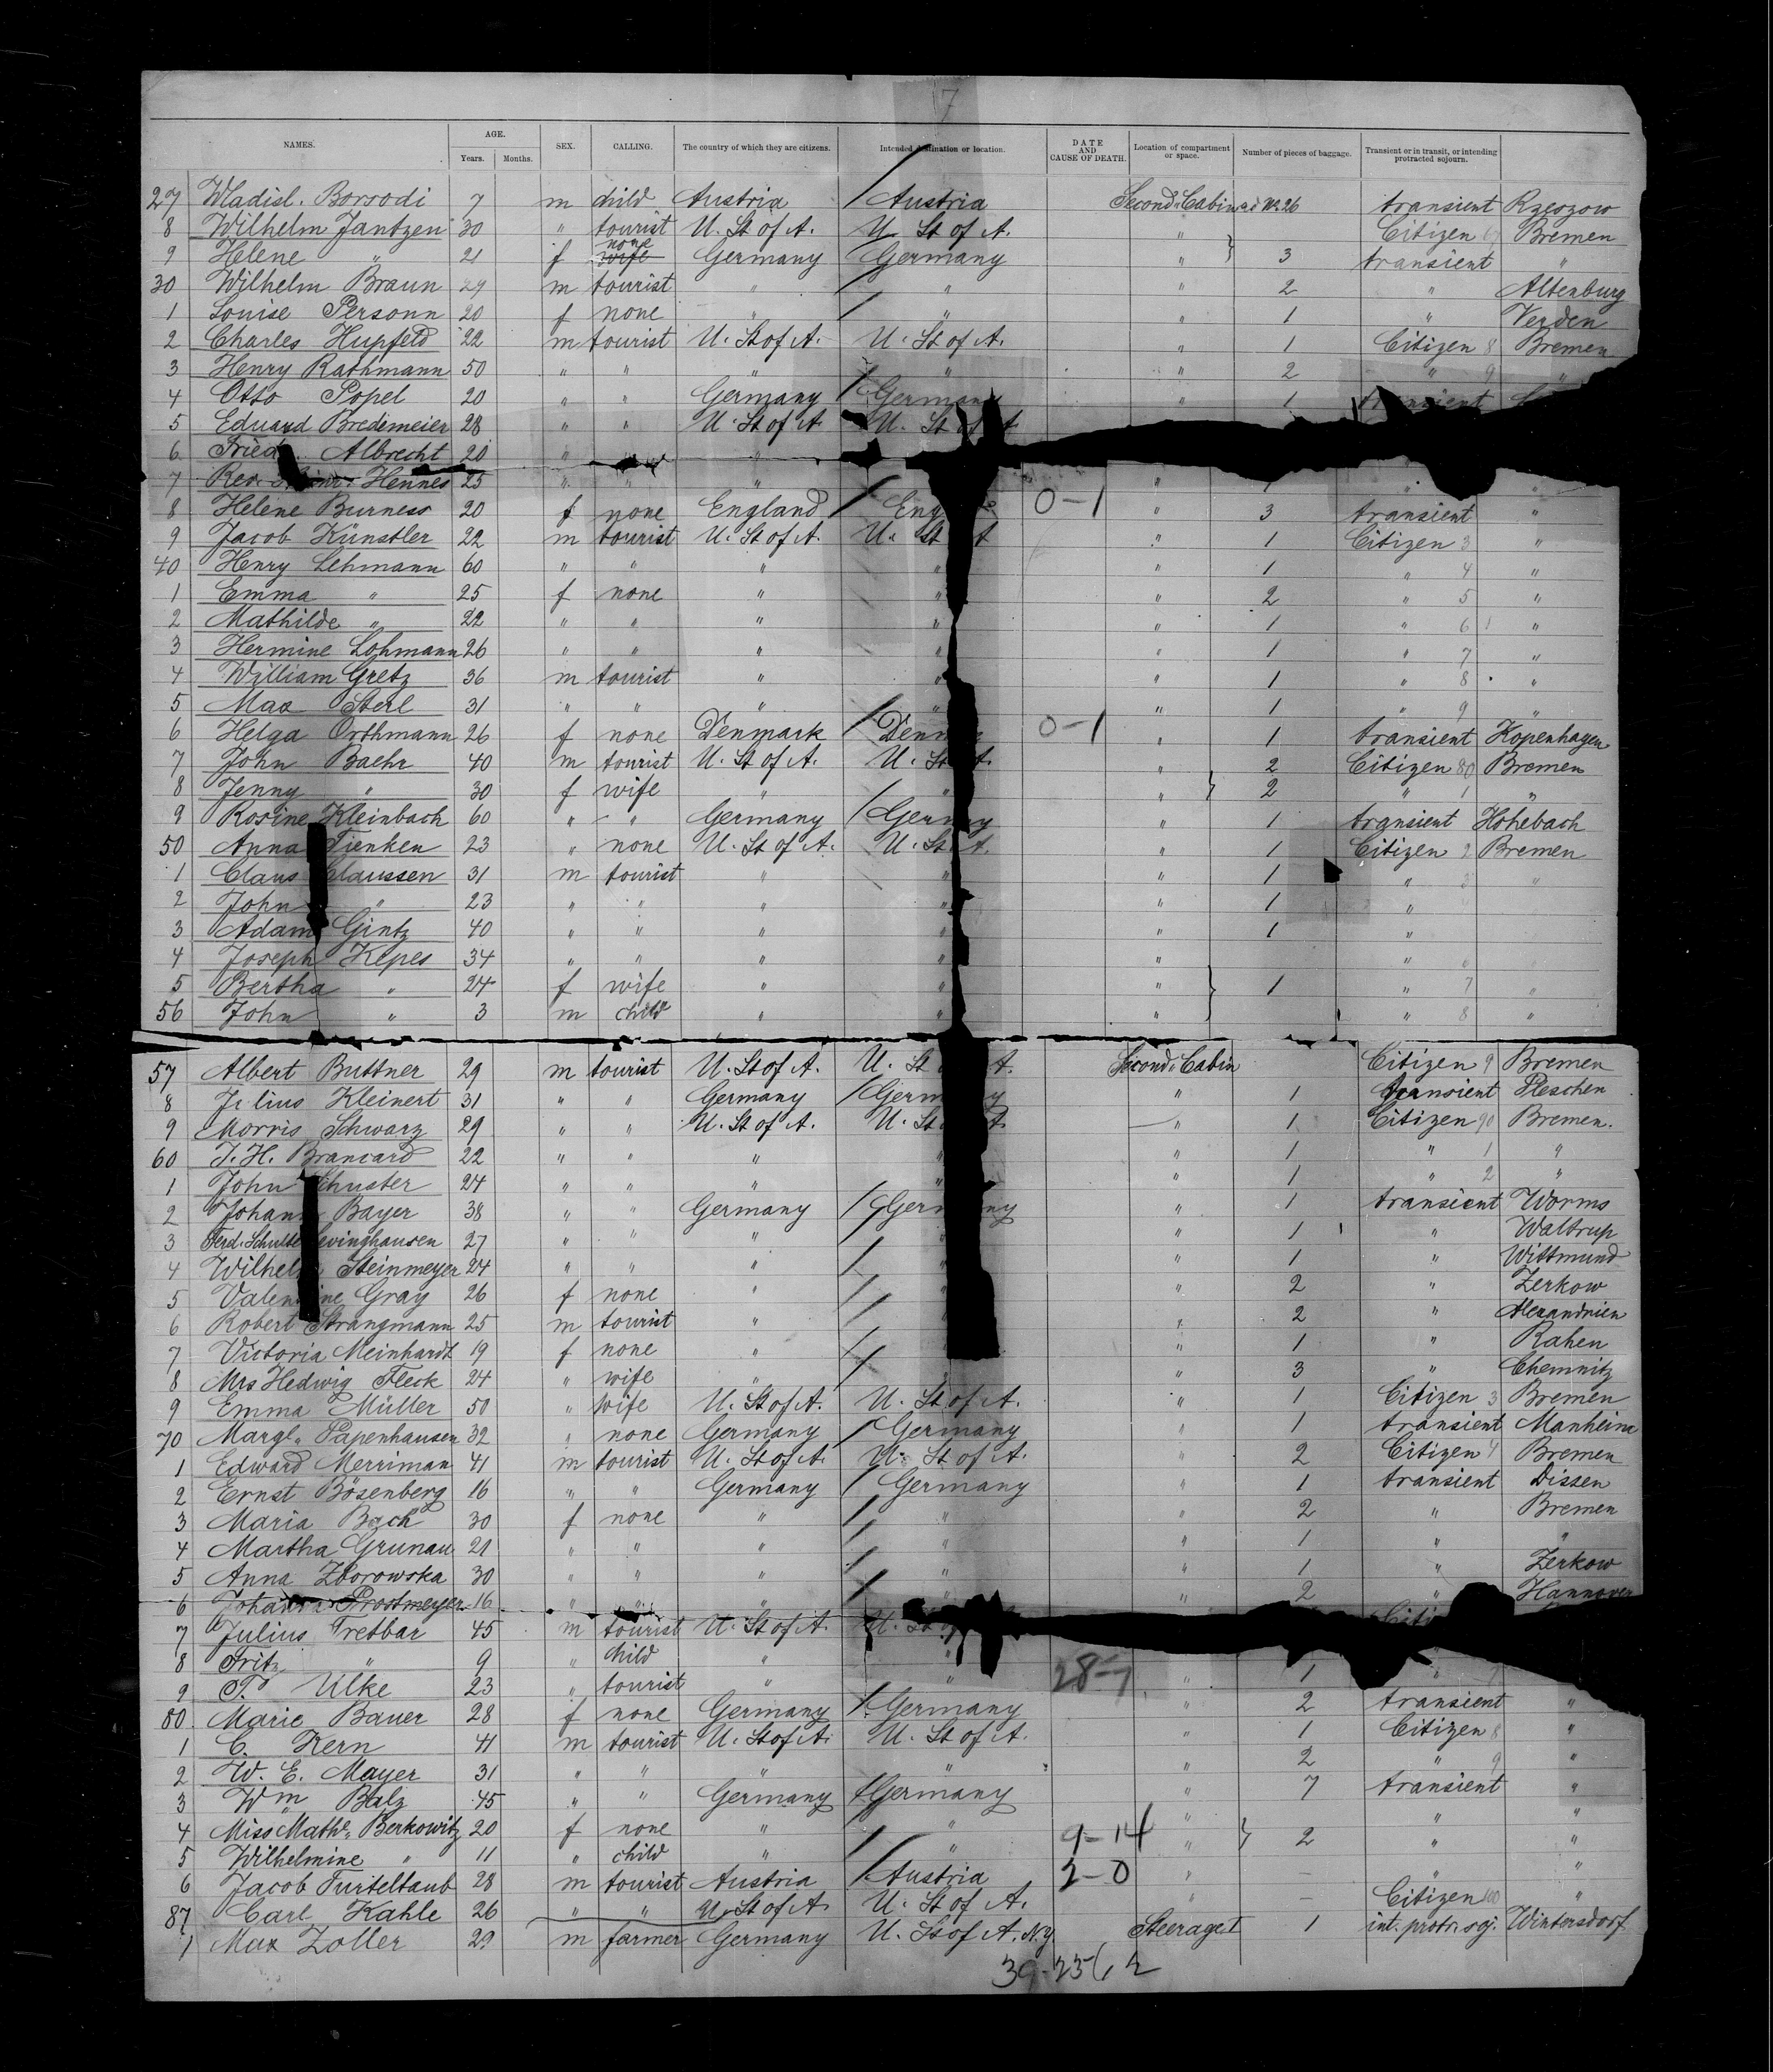 7
NAMES. AGE. Years. Months. SEX. CALLING. The country of which they are citizens. Intended destination or location. DATE AND CAUSE OF DEATH. Location of compartment or space. Number of pieces of baggage. Transient or in transit, or intending protracted sojourn.
27 Wladisl. Borsodi 7 m child Austria Austria Second Cabin No 26 transient Rzeszow
8 Wilhelm Jantzen 30 " tourist U. St of A. U. St of A. " Citizen Bremen
9 Helene " 21 f none wife Germany Germany " 3 transient "
30 Wilhelm Braun 29 m tourist " " " 2 " Altenburg
1 Louise Personn 20 f none " " " 1 " Verden
2 Charles Hupfeld 22 m tourist U. St of A. U. St of A. " 1 Citizen 8 Bremen
3 Henry Rathmann 50 " " " " " 2 " 9 "
4 Otto Popel 20 " " Germany Germany " 1 transient
5 Eduard Bredemeier 28 " " U. St of A. U. St of A
6 Friedr. Albrecht 20 " " "
7 Rev. Hennes 25 " " " " "
8 Helene Burness 20 f none England Eng 0-1 " 3 transient "
9 Jacob Künstler 22 m tourist U. St of A. U. St A " 1 Citizen 3 "
40 Henry Lehmann 60 " " " " " 1 " 4 "
1 Emma " 25 f none " " " 2 " 5 "
2 Mathilde " 22 " " " " " 1 " 6 "
3 Hermine Lohmann 26 " " " " " 1 " 7 "
4 William Gretz 36 m tourist " " " 1 " 8 "
5 Max Sterl 31 " " " " " 1 " 9 "
6 Helga Orthmann 26 f none Denmark Denm 0-1 " 1 transient Kopenhagen
7 John Baehr 40 m tourist U. St of A. U. St A. " 2 Citizen 80 Bremen
8 Jenny " 30 f wife " " " 2 " 1 "
9 Rosine Kleinbach 60 " " Germany Germ y " 1 transient Hohebach
50 Anna Tienken 23 " none U. St of A. U. St A. " 1 Citizen 2 Bremen
1 Claus Claussen 31 m tourist " " " 1 " 3 "
2 John " 23 " " " " " 1 "
3 Adam Gintz 40 " " " " " 1 "
4 Joseph Kepes 34 " " " " " "
5 Bertha " 24 f wife " " " 1 " 7 "
56 John " 3 m child " " " " 8 "
57 Albert Buttner 29 m tourist U. St of A. U. St A. Second Cabin Citizen 9 Bremen
8 Julius Kleinert 31 " " Germany Germ y " 1 transient Pleschen
9 Morris Schwarz 29 " " U. St of A. U. St A. " 1 Citizen 90 Bremen.
60 J. H. Brancard 22 " " " " " 1 " 1 "
1 John Schuster 24 " " " " " 1 " 2 "
2 Johann Bayer 38 " " Germany Ger ny " 1 transient Worms
3 Ferd. Schulte evinghausen 27 " " " " 1 " Waltrup
4 Wilhelm Steinmeyer 24 " " " " 1 " Wittmund
5 Valentine Gray 26 f none " " 2 " Zerkow
6 Robert Strangmann 25 m tourist " " 2 " Alexandrien
7 Victoria Meinhardt 19 f none " " 1 " Rahen
8 Mrs Hedwig Fleck 24 " wife " " 3 " Chemnitz
9 Emma Müller 50 " wife U. St of A. U. St of A. " 1 Citizen 3 Bremen
70 Margt. Papenhausen 32 " none Germany Germany " 1 transient Manheim
1 Edward Merriman 41 m tourist U. St of A. U. St of A. " 2 Citizen 4 Bremen
2 Ernst Bösenberg 16 " " Germany Germany " 1 transient Dissen
3 Maria Bach 30 f none " " " 2 " Bremen
4 Martha Grunau 21 " " " " " 1 " "
5 Anna Zborowska 30 " " " " " 1 " Zerkow
6 Johanna Prostmeyer 16 " " " " " 2 " Hannover
7 Julius Tretbar 45 m tourist U. St of A. U. St Citi
8 Fritz " 9 " child " "
9 P. Ulke 23 " tourist " " 28-7 " 1 "
80 Marie Bauer 28 f none Germany Germany " 2 transient "
1 C. Kern 41 m tourist U. St of A. U. St of A. " 1 Citizen 8 "
2 W. E. Mayer 31 " " " " " 2 " 9 "
3 Wm Balz 45 " " Germany Germany " 7 transient "
4 Miss Mathe. Berkowitz 20 f none " " 9-14 " 2 " "
5 Wilhelmine " 11 " child " " " " "
6 Jacob Turteltaub 28 m tourist Austria Austria 2-0 " – " "
87 Carl Kahle 26 " " U. St of A. U. St of A. " – Citizen 100 "
1 Max Zoller 29 m farmer Germany U. St of A. N.Y. Steerage 1 1 int. protr. soj. Wintersdorf